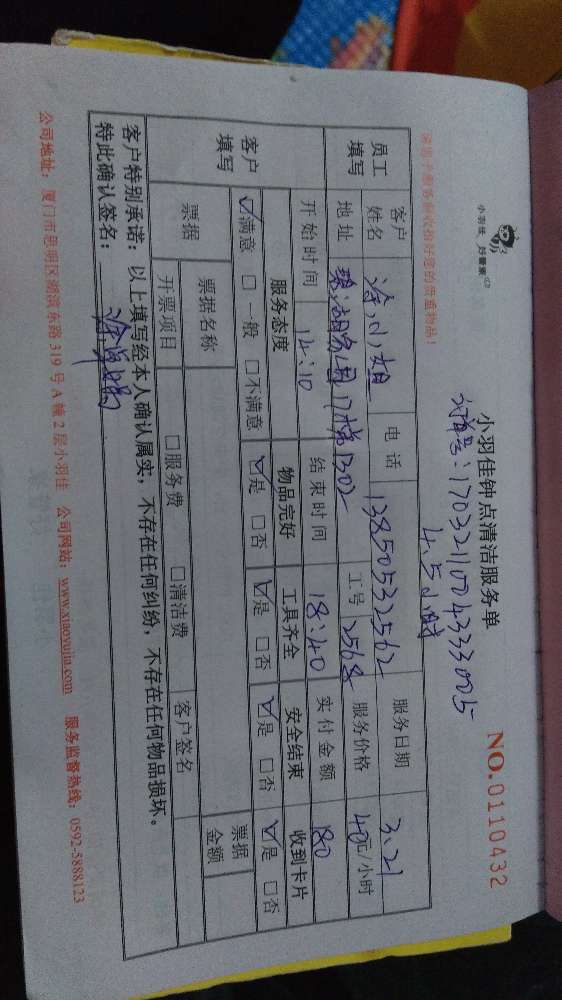 小羽佳 好管家
小羽佳钟点清洁服务单
NO.0110432
订单号:1703211004333005
4.5小时
员工填写
客户姓名 涂小姐 电话 13850532562 服务日期 3.21
地址 碧湖家园17栋1302 工号 2568 服务价格 40元/小时
开始时间 14:10 结束时间 18:40 实付金额 180
客户填写
服务态度 物品完好 工具齐全 安全结束 收到卡片
☑满意 □一般 □不满意 ☑是 □否 ☑是 □否 ☑是 □否 ☑是 □否
票据 票据名称 票据金额
开票项目 □服务费 □清洁费 客户签名
客户特别承诺:以上填写经本人确认属实,不存在任何纠纷,不存在任何物品损坏。
特此确认签名:
公司地址:厦门市思明区湖滨东路319号A幢2层小羽佳 公司网站:www.xiaoyujia.com 服务监督热线:0592-5888123